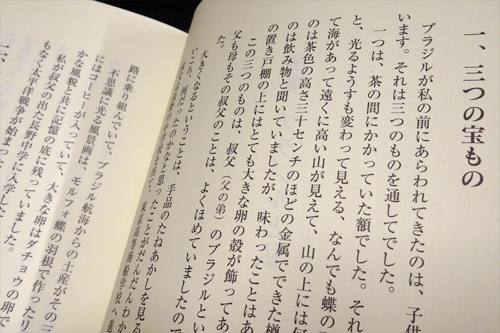 一、三つの宝もの
ブラジルが私の前にあらわれてきたのは、子供
います。それは三つのものを通してでした。
一つは、茶の間にかかっていた額でした。それ
と、光るようすも変わって見える、なんでも蝶の
て海があって遠くに高い山が見えて、山の上には何
のは茶色の高さ三十センチのほどの金属でできた樽
のは飲み物と聞いていましたが、味わったことはあ
の置き戸棚の上にはとても大きな卵の殻が飾ってあ
この三つのものは、叔父（父の弟）のブラジルという
父も母もその叔父のことは、よくほめていました。
大きくなるということは、手品のたねあかしを見る
たことがだんだんわか
路に乗り組んでいて、ブラジル航海からの土産がその三
不思議に光る風景画は、モルフォ蝶の羽根で作ったリ
にはコーヒーが入っていて、大きな卵はダチョウの卵で
かな風貌と共に記憶の底に残っていました。
私が叔父の出た長野中学に入学した
もなく太平洋戦争が始まった